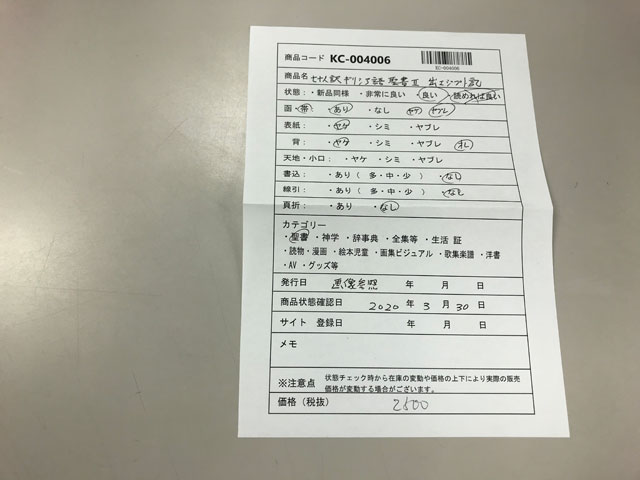 商品コード KC-004006
KC-004006
商品名 七十人訳ギリシア語聖書Ⅱ 出エジプト記
状態：・新品同様 ・非常に良い ・良い ・読めれば良い
函・帯 ・あり ・なし ヤケ ヤブレ
表紙：・ヤケ ・シミ ・ヤブレ
背：・ヤケ ・シミ ・ヤブレ オレ
天地・小口：・ヤケ ・シミ ・ヤブレ
書込：・あり（ 多・中・少 ） ・なし
線引：・あり（ 多・中・少 ） ・なし
頁折：・あり ・なし
カテゴリー
・聖書 ・神学 ・辞事典 ・全集等 ・生活 証
・読物・漫画 ・絵本児童 ・画集ビジュアル ・歌集楽譜 ・洋書
・AV ・グッズ等
発行日 画像参照 年 月 日
商品状態確認日 2020 年 3 月 30 日
サイト 登録日 年 月 日
メモ
※注意点 状態チェック時から在庫の変動や価格の上下により実際の販売
価格が変動する場合がございます。
価格（税抜） 2500